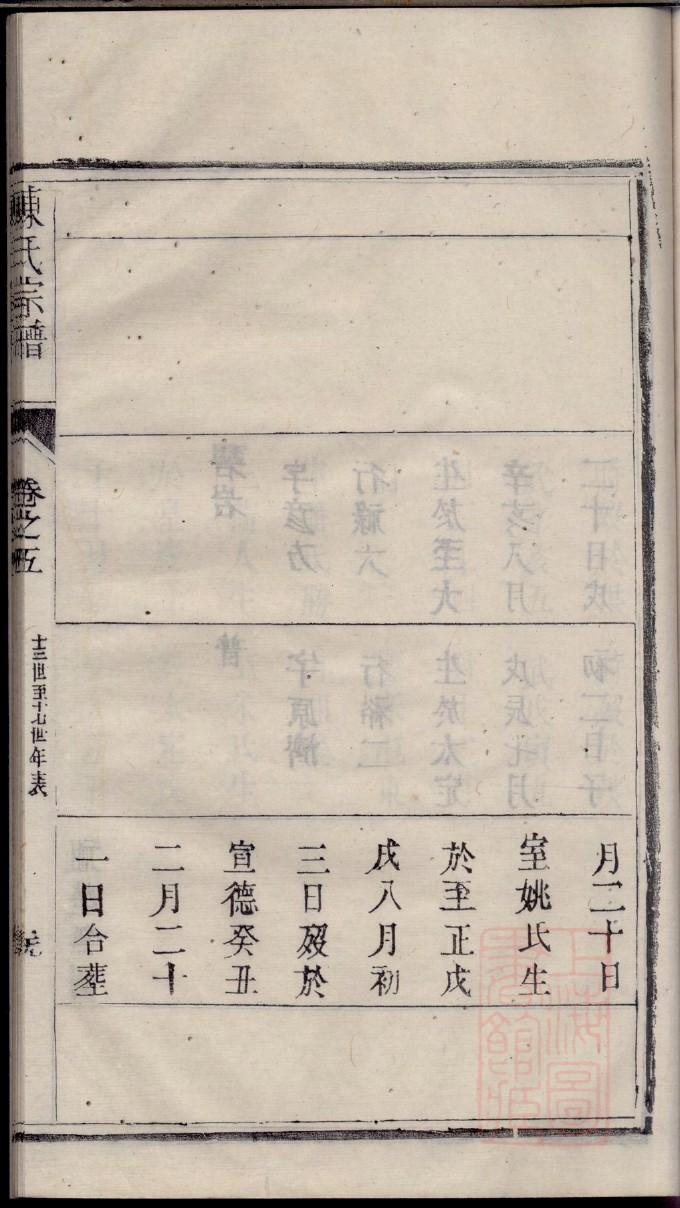 月二十日
室姚氏生
於至正戊
戌八月初
三日歿於
宣德癸丑
二月二十
一日合塟
陳氏宗譜
卷之五
十三世至十七世年表